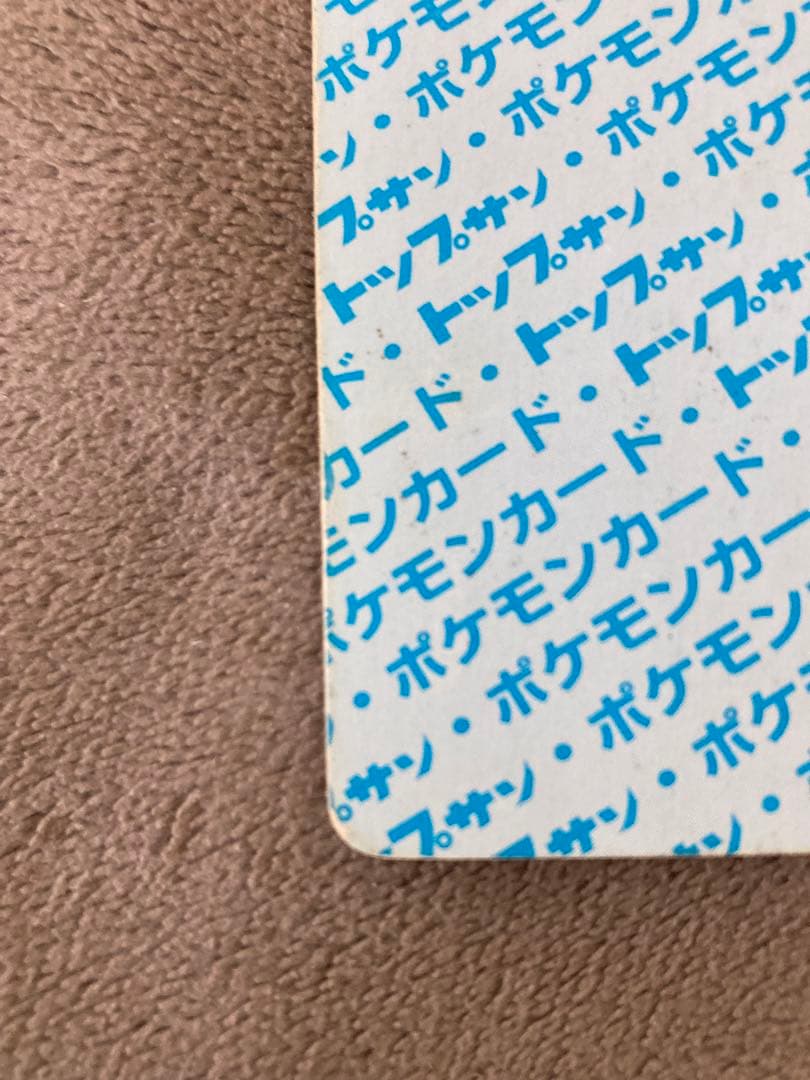 モ
ポケモン
ン・ポケモン
プサン・ポケモン
トップサン・ポケモン
ド・トップサン・ポケモ
カード・トップサン・
モンカード・トップサ
ポケモンカード・トッ
・ポケモンカード・
サン・ポケモンカー
プサン・ポケモン
プサン・ポケ
サン・